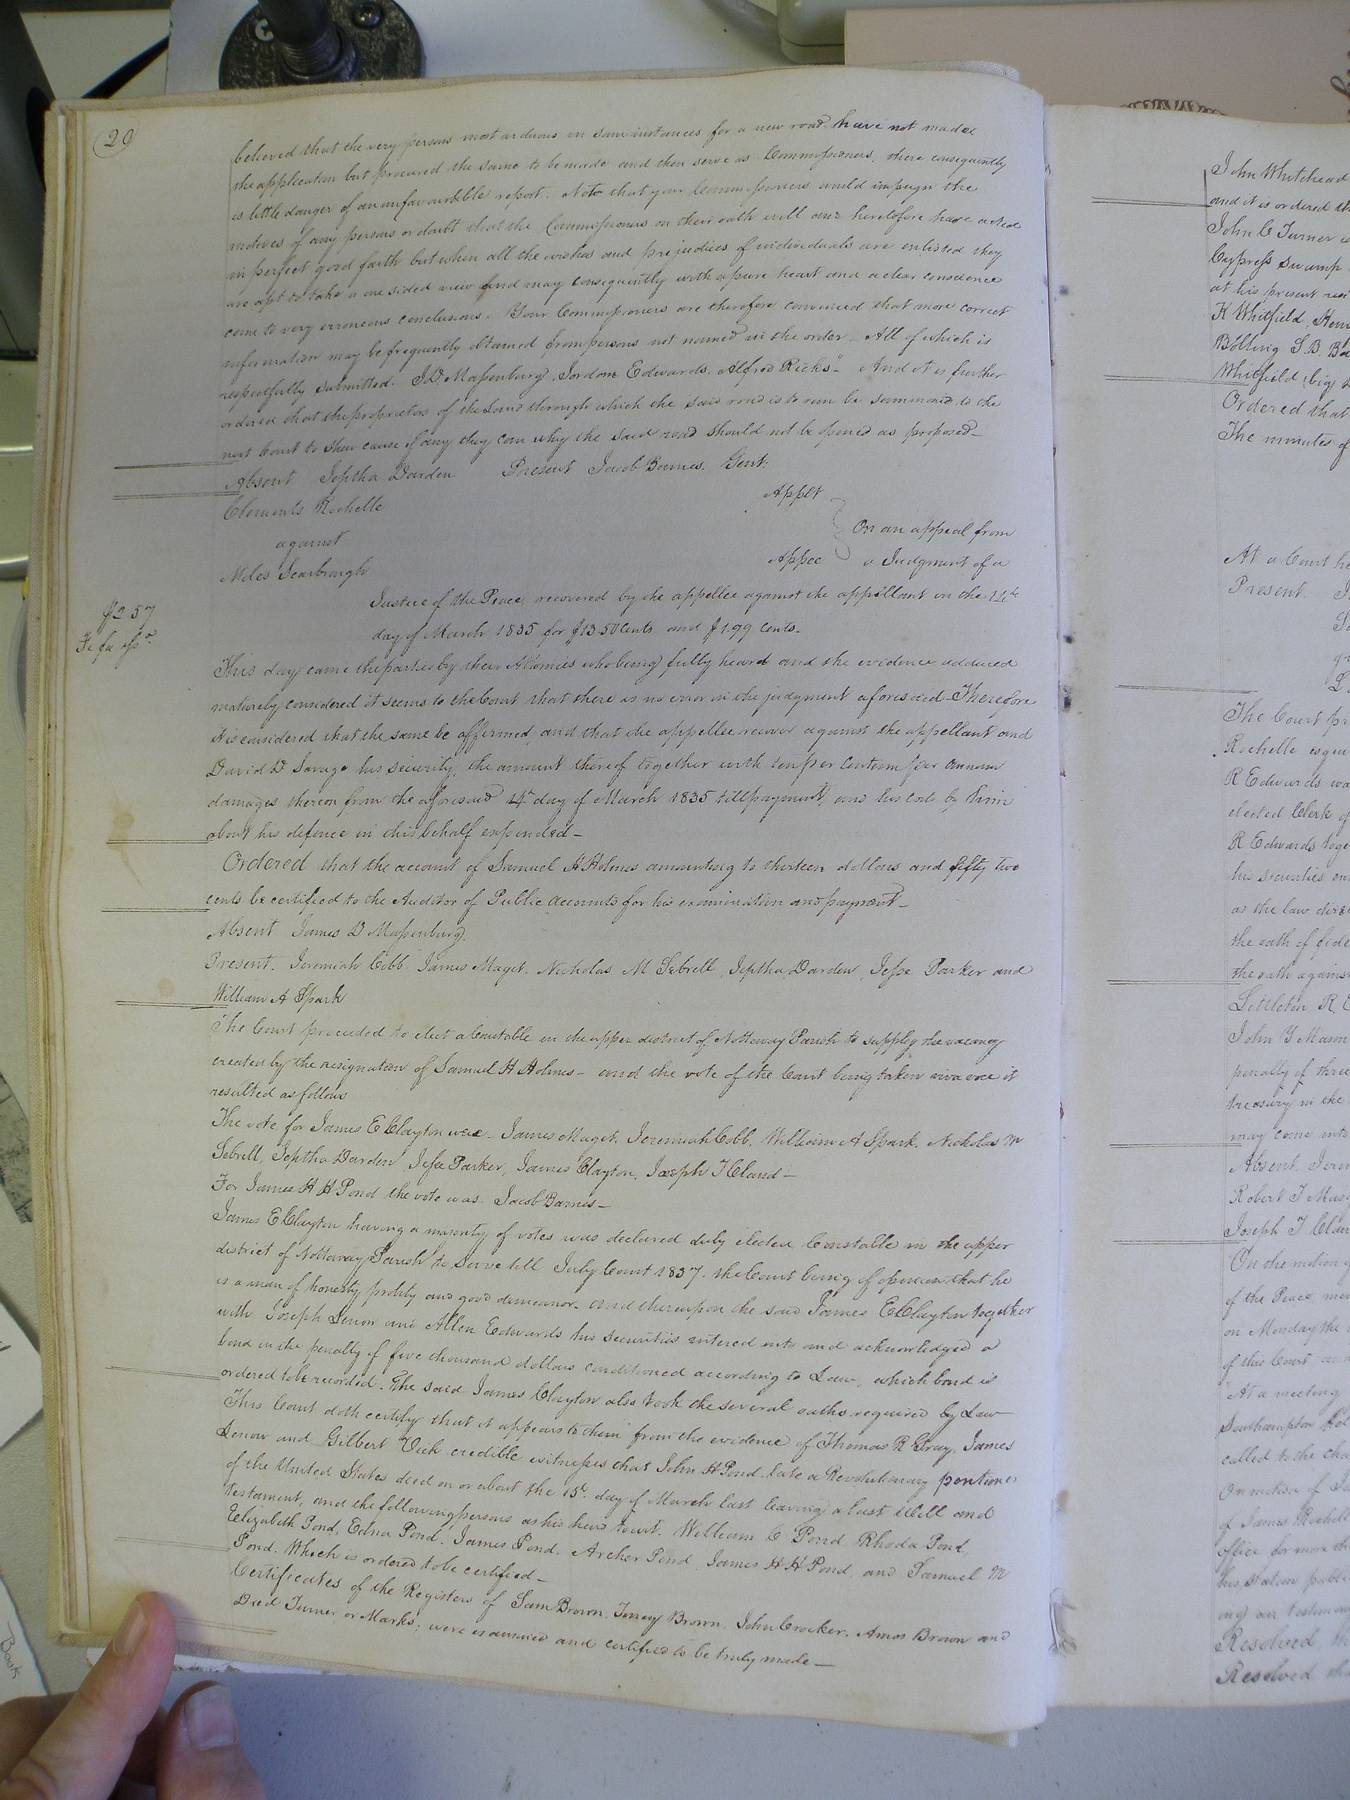 20
believed that the very persons most arduous in some instances for a new road have not made
the application but procured the same to be made and then serve as Commissioners, there consequently
is little danger of an unfavourable report. Not that your Commissioners would impugn the
motives of any persons or doubt that the Commissioners on their oath will and heretofore have acted
in perfect good faith but when all the wishes and prejudices of individuals are enlisted they
are apt to take a one sided view and may consequently with a pure heart and a clear conscience
come to very erroneous conclusions. Your Commissioners are therefore convinced that more correct
information may be frequently obtained from persons not named in the order - All of which is
respectfully submitted. J. D. Massenburg, Jordan Edwards, Alfred Ricks" - And it is further
ordered that the proprietors of the land through which the said road is to run be summoned to the
next Court to shew cause if any they can why the said road should not be opened as proposed -
Absent Jeptha Darden Present Jacob Barnes, Gent:
Clements Rochelle Applt
against On an appeal from
Miles Scarbrough Appee a Judgment of a
Justice of the Peace, recovered by the appellee against the appellant on the 14th
$2.57
day of March 1835 for $13.50 Cents and $1.99 Cents.
Fi fa
This day came the parties by their Attornies who being fully heard and the evidence adduced
maturely considered it seems to the Court that there is no error in the judgment aforesaid - Therefore
it is considered that the same be affirmed, and that the appellee recover against the appellant and
David D Savage his security, the amount thereof together with ten per centum per annum
damages thereon from the aforesaid 14th day of March 1835 till payment, and his costs by him
about his defence in this behalf expended -
Ordered that the account of Samuel H Holmes amounting to thirteen dollars and fifty two
cents be certified to the Auditor of Public accounts for his examination and payment -
Absent James D Massenburg.
Present. Jeremiah Cobb. James Maget. Nicholas M Sebrell, Jeptha Darden, Jesse Parker and
William A Spark
The Court proceeded to elect a Constable in the upper district of Nottoway Parish to supply the vacancy
created by the resignation of Samuel H Holmes - and the vote of the Court being taken viva voce it
resulted as follows
The vote for James E Clayton was - James Maget, Jeremiah Cobb, William A Spark, Nicholas M
Sebrell, Jeptha Darden, Jesse Parker, James Clayton, Joseph T Claud -
For James H H Pond the vote was. Jacob Barnes -
James E Clayton having a majority of votes was declared duly elected Constable in the upper
district of Nottoway Parish to serve till July Court 1837. the Court being of opinion that he
is a man of honesty probity and good demeanor. and thereupon the said James E Clayton together
with Joseph Lenow and Allen Edwards his securities entered into and acknowledged a
bond in the penalty of five thousand dollars conditioned according to Law, which bond is
ordered to be recorded. The said James Clayton also took the several oaths required by Law
This Court doth certify that it appears to them from the evidence of Thomas R Gray, James
Lenow and Gilbert Vick credible witnesses that John H Pond late a Revolutionary pentioner
of the United States died on or about the 15th day of March last leaving a last Will and
testament, and the following persons as his heirs towit. William C Pond Rhoda Pond,
Elizabeth Pond, Edna Pond, James Pond. Archer Pond James H H Pond, and Samuel M
Pond. Which is ordered to be certified -
Certificates of the Registers of Sam Brown. Tempy Brown. John Crocker. Amos Brown and
Dred Turner or Marks, were examined and certified to be truly made -
John Whitehead
and it is ordered
John C Turner
Cypress Swamp
at his present
K Whitfield,
Bolling S. B.
Whitfield (big)
Ordered that
The minutes of
At a Court
Present
The Court
Rochelle
R Edwards
elected Clerk of
R Edwards
his securities
as the law
the oath of
the oath against
Littleton R
John Y Mason
penalty of three
treasury in the
may come into
Absent.
Robert T
Joseph T
On the motion of
of the Peace
on Monday the
of this Court
"At a meeting
Southampton
called to the
On motion of
of James Rochelle
office for more
his station
our
Resolved,
Resolved
Book